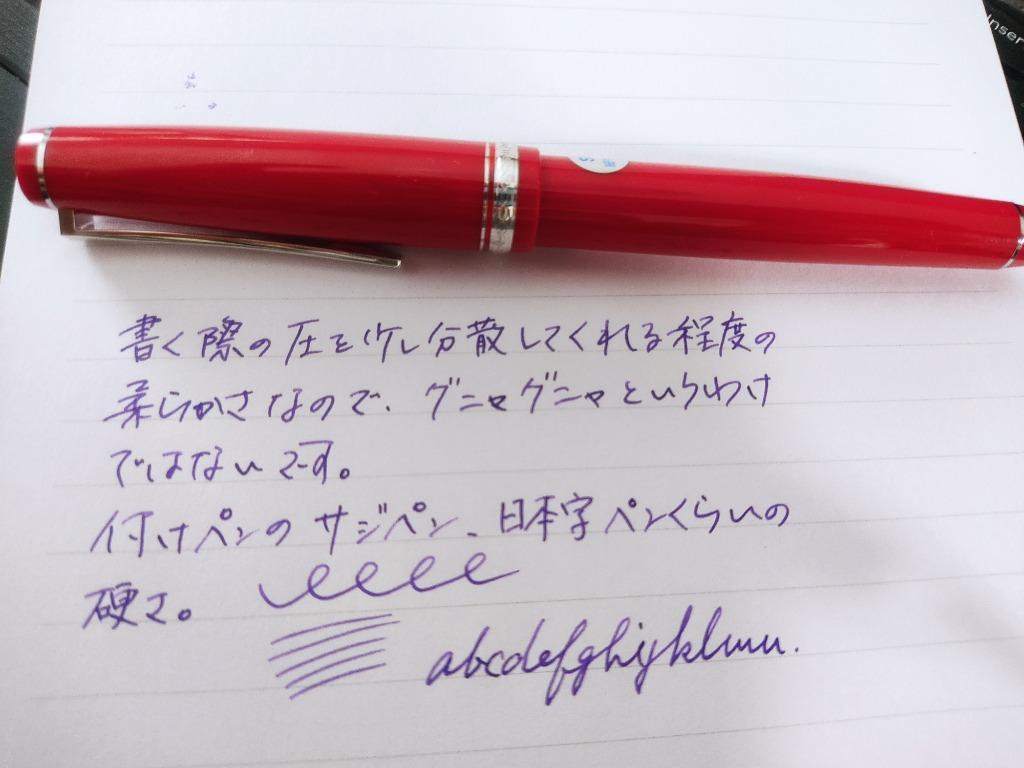 Inser
書く際の圧を少し分散してくれる程度の
柔らかさなので、グニャグニャというわけ
ではないです。
付けペンのサジペン、日本字ペンくらいの
硬さ。
abcdefghijklmn.